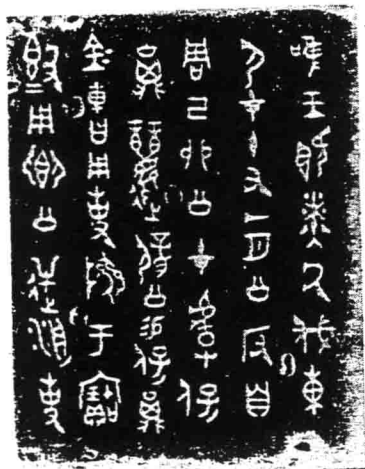 唯王既燎厥伐東
尸在十又一月公反自
周己卯公在虞保
員邐辟公易保員
金車曰用事隊于寶
簋簋用饗公逆洀事